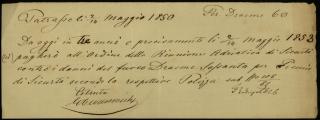 Patrasso li 2/14 Maggio 1850 Per Dracme 60
Da oggi in tre anni e precisamente li 2/14 Maggio 1853
pagherò all'Ordine della Riunione Adriatica di Sicurtà
contro i danni del fuoco Dracme Sessanta per Premio
di Sicurtà secondo la respettiva Polizza sub No